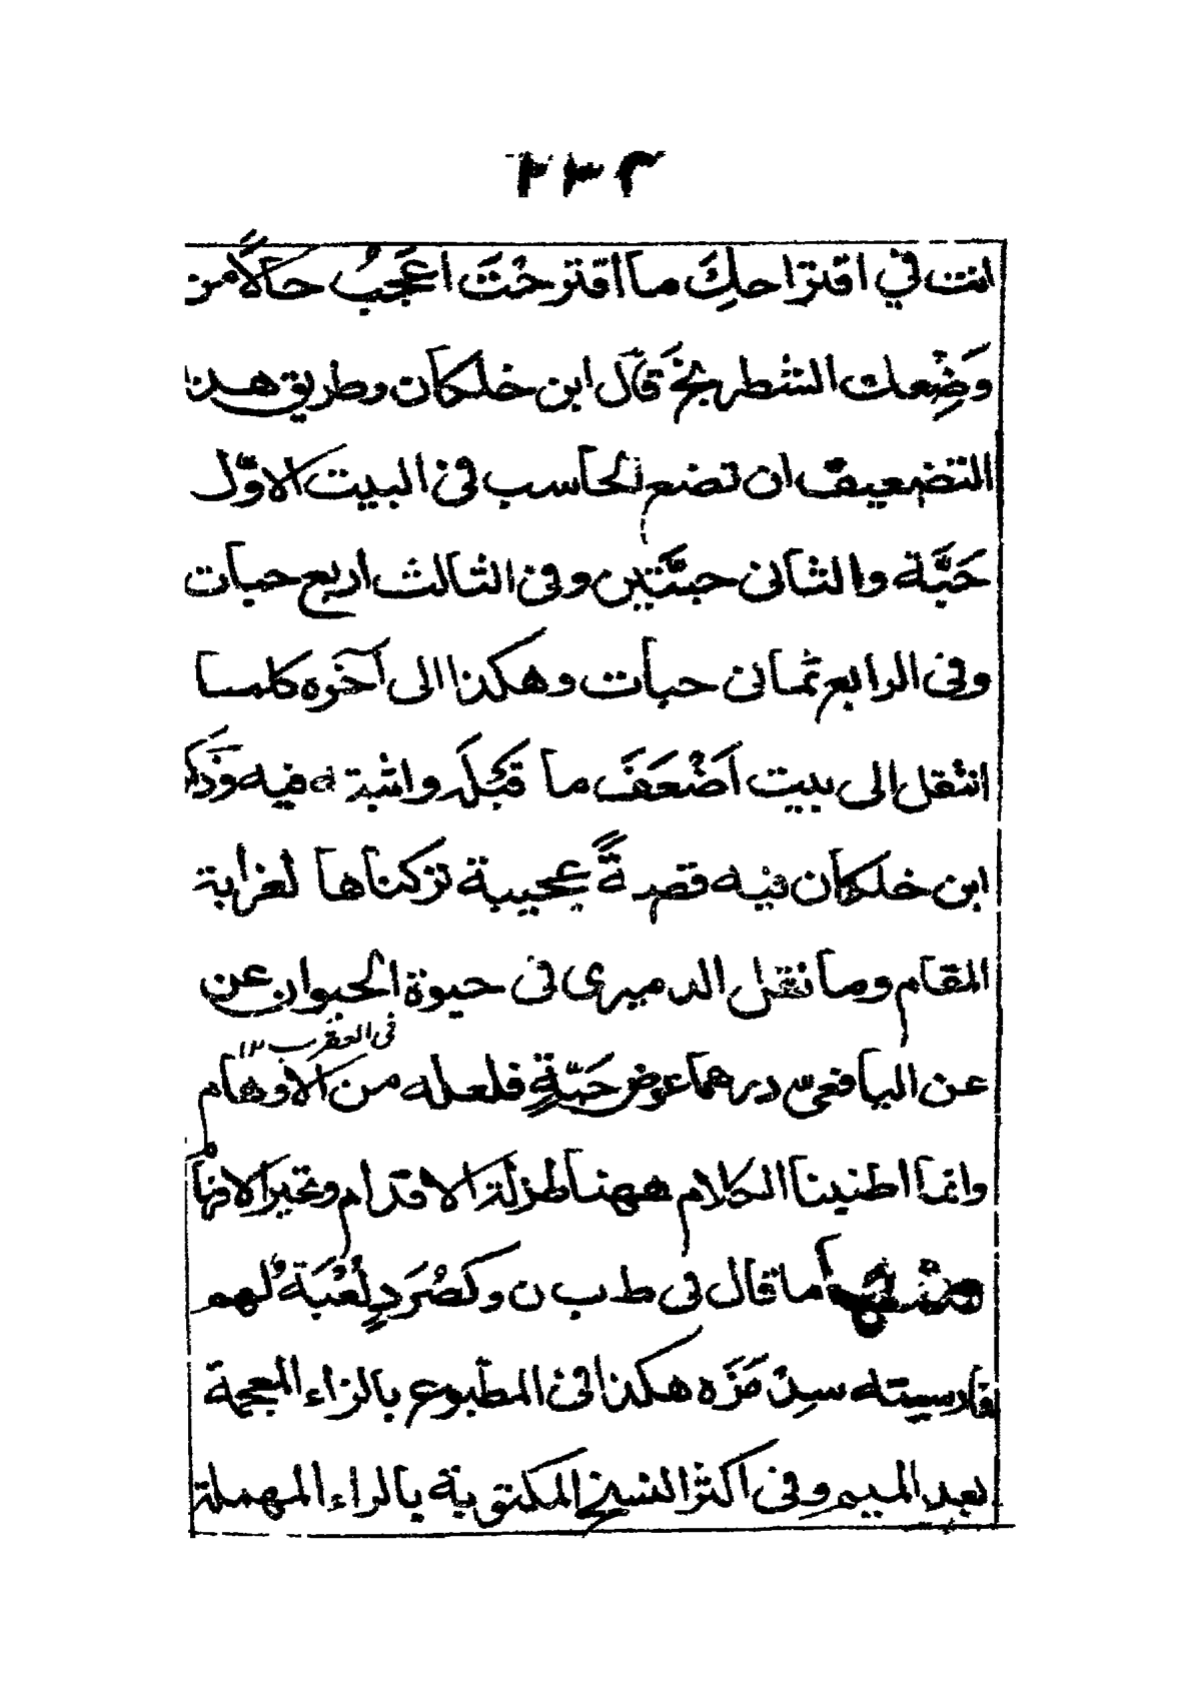 ٢٣٣
انت في اقتراحكَ ما اقترحْتَ اعَجَبُ حالاً من
وَضْعك الشطرنج قال ابن خلكان وطريق هذا
التضعيف ان تضع الحاسب فى البيت الاوّل
حَبَّة والثانى حبَّتين وفى الثالث اربع حبات
وفى الرابع ثمانى حبات وهكذا الى آخره كلما
انتقل الى بيت اَضْعَفَ ما قَبْلَه واثبته فيه وذكر
ابن خلكان فيه قصةً عجيبة تركناها لغرابة
المقام وما نقل الدميرى فى حيوة الحيوان عن
فى العقرب ١٢
عن اليافعىّ درهما عوض حَبّةٍ فلعله من الاوهام
وانما اطنبنا الكلام ههنا لمزلة الاقدام وتحير الافهام
ما قال فى ط ب ن وكصُرَدٍ لُعْبَةٌ لهم
فارسيته سِدْ مَزَه هكذا فى المطبوع بالزاء المعجمة
بعد الميم وفى اكثر النسخ المكتوبة بالراء المهملة